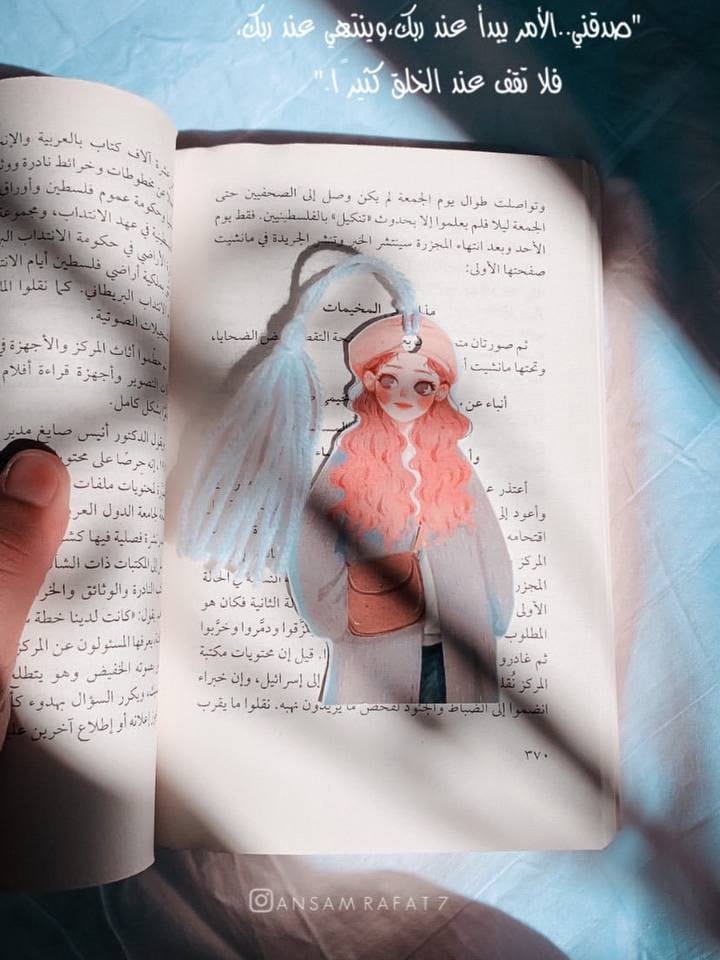 "صدقني..الأمر يبدأ عند ربك،وينتهي عند ربك،
فلا تقف عند الخلق كثيرًا."
آلاف كتاب بالعربية
مخطوطات وخرائط نادرة
وحكومة عموم فلسطين وأوراق
في عهد الانتداب، ومجموعة
الأراضي في حكومة الانتداب
ملكية أراضي فلسطين أيام
الانتداب البريطاني. كما نقلوا
الصوتية.
أثاث المركز والأجهزة
التصوير وأجهزة قراءة أفلام
بشكل كامل.
الدكتور أنيس صايغ مدير
حرصًا على
ملفات
جامعة الدول
فصلية فيها
المكتبات ذات
النادرة والوثائق
يقول: «كانت لدينا خطة
يعرفها المسئولون عن المركز
الخفيض وهو
ويكرر السؤال بهدوء
أو إطلاع آخرين
وتواصلت طوال يوم الجمعة لم يكن وصل إلى الصحفيين حتى
الجمعة ليلا فلم يعلموا إلا بحدوث «تنكيل» بالفلسطينيين. فقط يوم
الأحد وبعد انتهاء المجزرة سينتشر الخبر وتنشر الجريدة في مانشيت
صفحتها الأولى:
المخيمات
ثم صورتان الضحايا،
وتحتها مانشيت
أنباء عن
أعتذر
وأعود إلى
اقتحامه
المركز
الأولى الثانية فكان هو
المطلوب ودمَّروا وخرَّبوا
ثم غادروا قيل إن محتويات مكتبة
المركز إلى إسرائيل، وإن خبراء
انضموا إلى الضباط والجنود لفحص ما يريدون نهبه. نقلوا ما يقرب
٣٧٠
ANSAM RAFAT 7